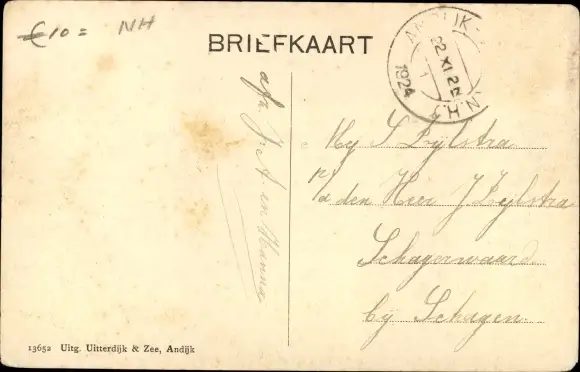 €10= NH
BRIEFKAART
ANDIJK
22 XI 2
1924
N.H.
afz. J. A. en Hanna
Mej S Zijlstra
p/a den Heer J. Zijlstra
Schagerwaard
bij Schagen
13652 Uitg. Uitterdijk & Zee, Andijk